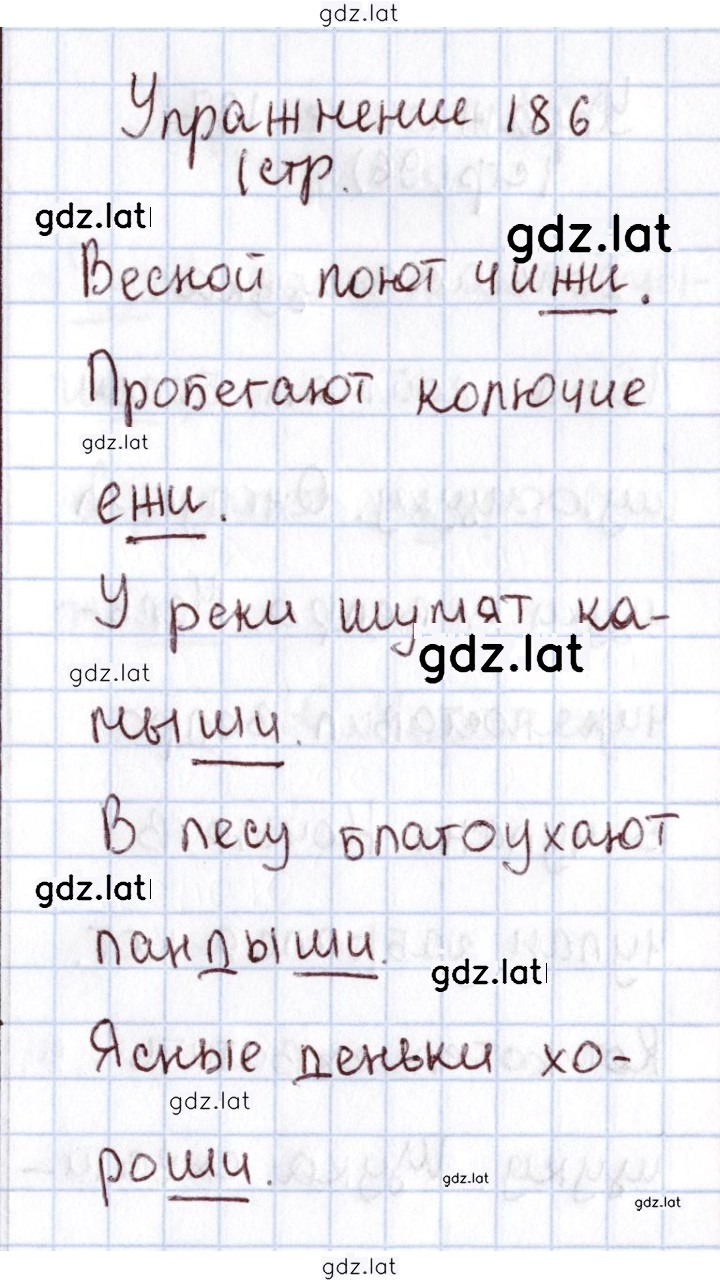 gdz.lat
Упражнение 186
(стр.
gdz.lat
gdz.lat
Весной поют чижи.
Пробегают колючие
gdz.lat
ежи.
У реки шумят ка-
gdz.lat
gdz.lat
мыши.
В лесу благоухают
gdz.lat
ландыши.
gdz.lat
Ясные деньки хо-
gdz.lat
роши.
gdz.lat
gdz.lat
gdz.lat